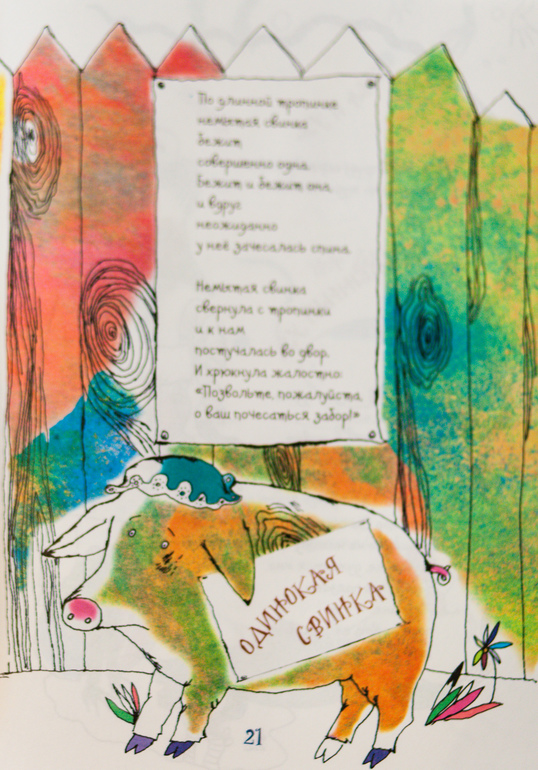 По длинной тропинке
немытая свинка
бежит
совершенно одна.
Бежит и бежит она,
и вдруг
неожиданно
у неё зачесалась спина.
Немытая свинка
свернула с тропинки
и к нам
постучалась во двор.
И хрюкнула жалостно:
«Позвольте, пожалуйста,
о ваш почесаться забор!»
ОДИНОКАЯ
СВИНКА
21